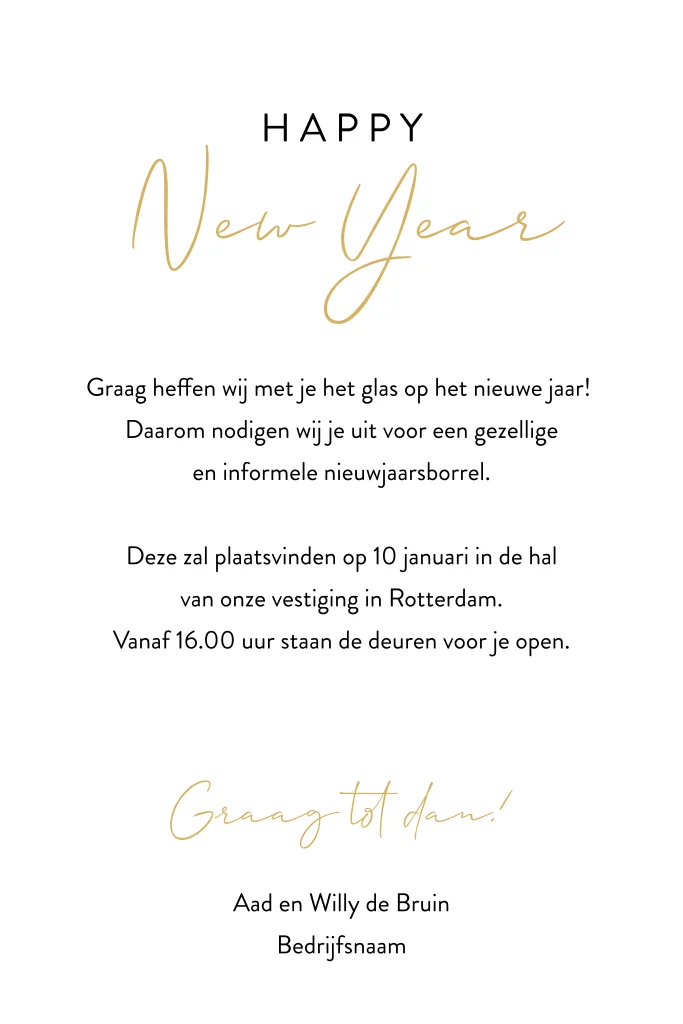 HAPPY
New Year
Graag heffen wij met je het glas op het nieuwe jaar!
Daarom nodigen wij je uit voor een gezellige
en informele nieuwjaarsborrel.
Deze zal plaatsvinden op 10 januari in de hal
van onze vestiging in Rotterdam.
Vanaf 16.00 uur staan de deuren voor je open.
Graag tot dan!
Aad en Willy de Bruin
Bedrijfsnaam